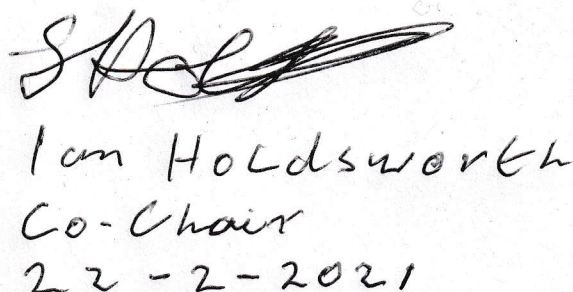 Ian Holdsworth
Co-Chair
22-2-2021